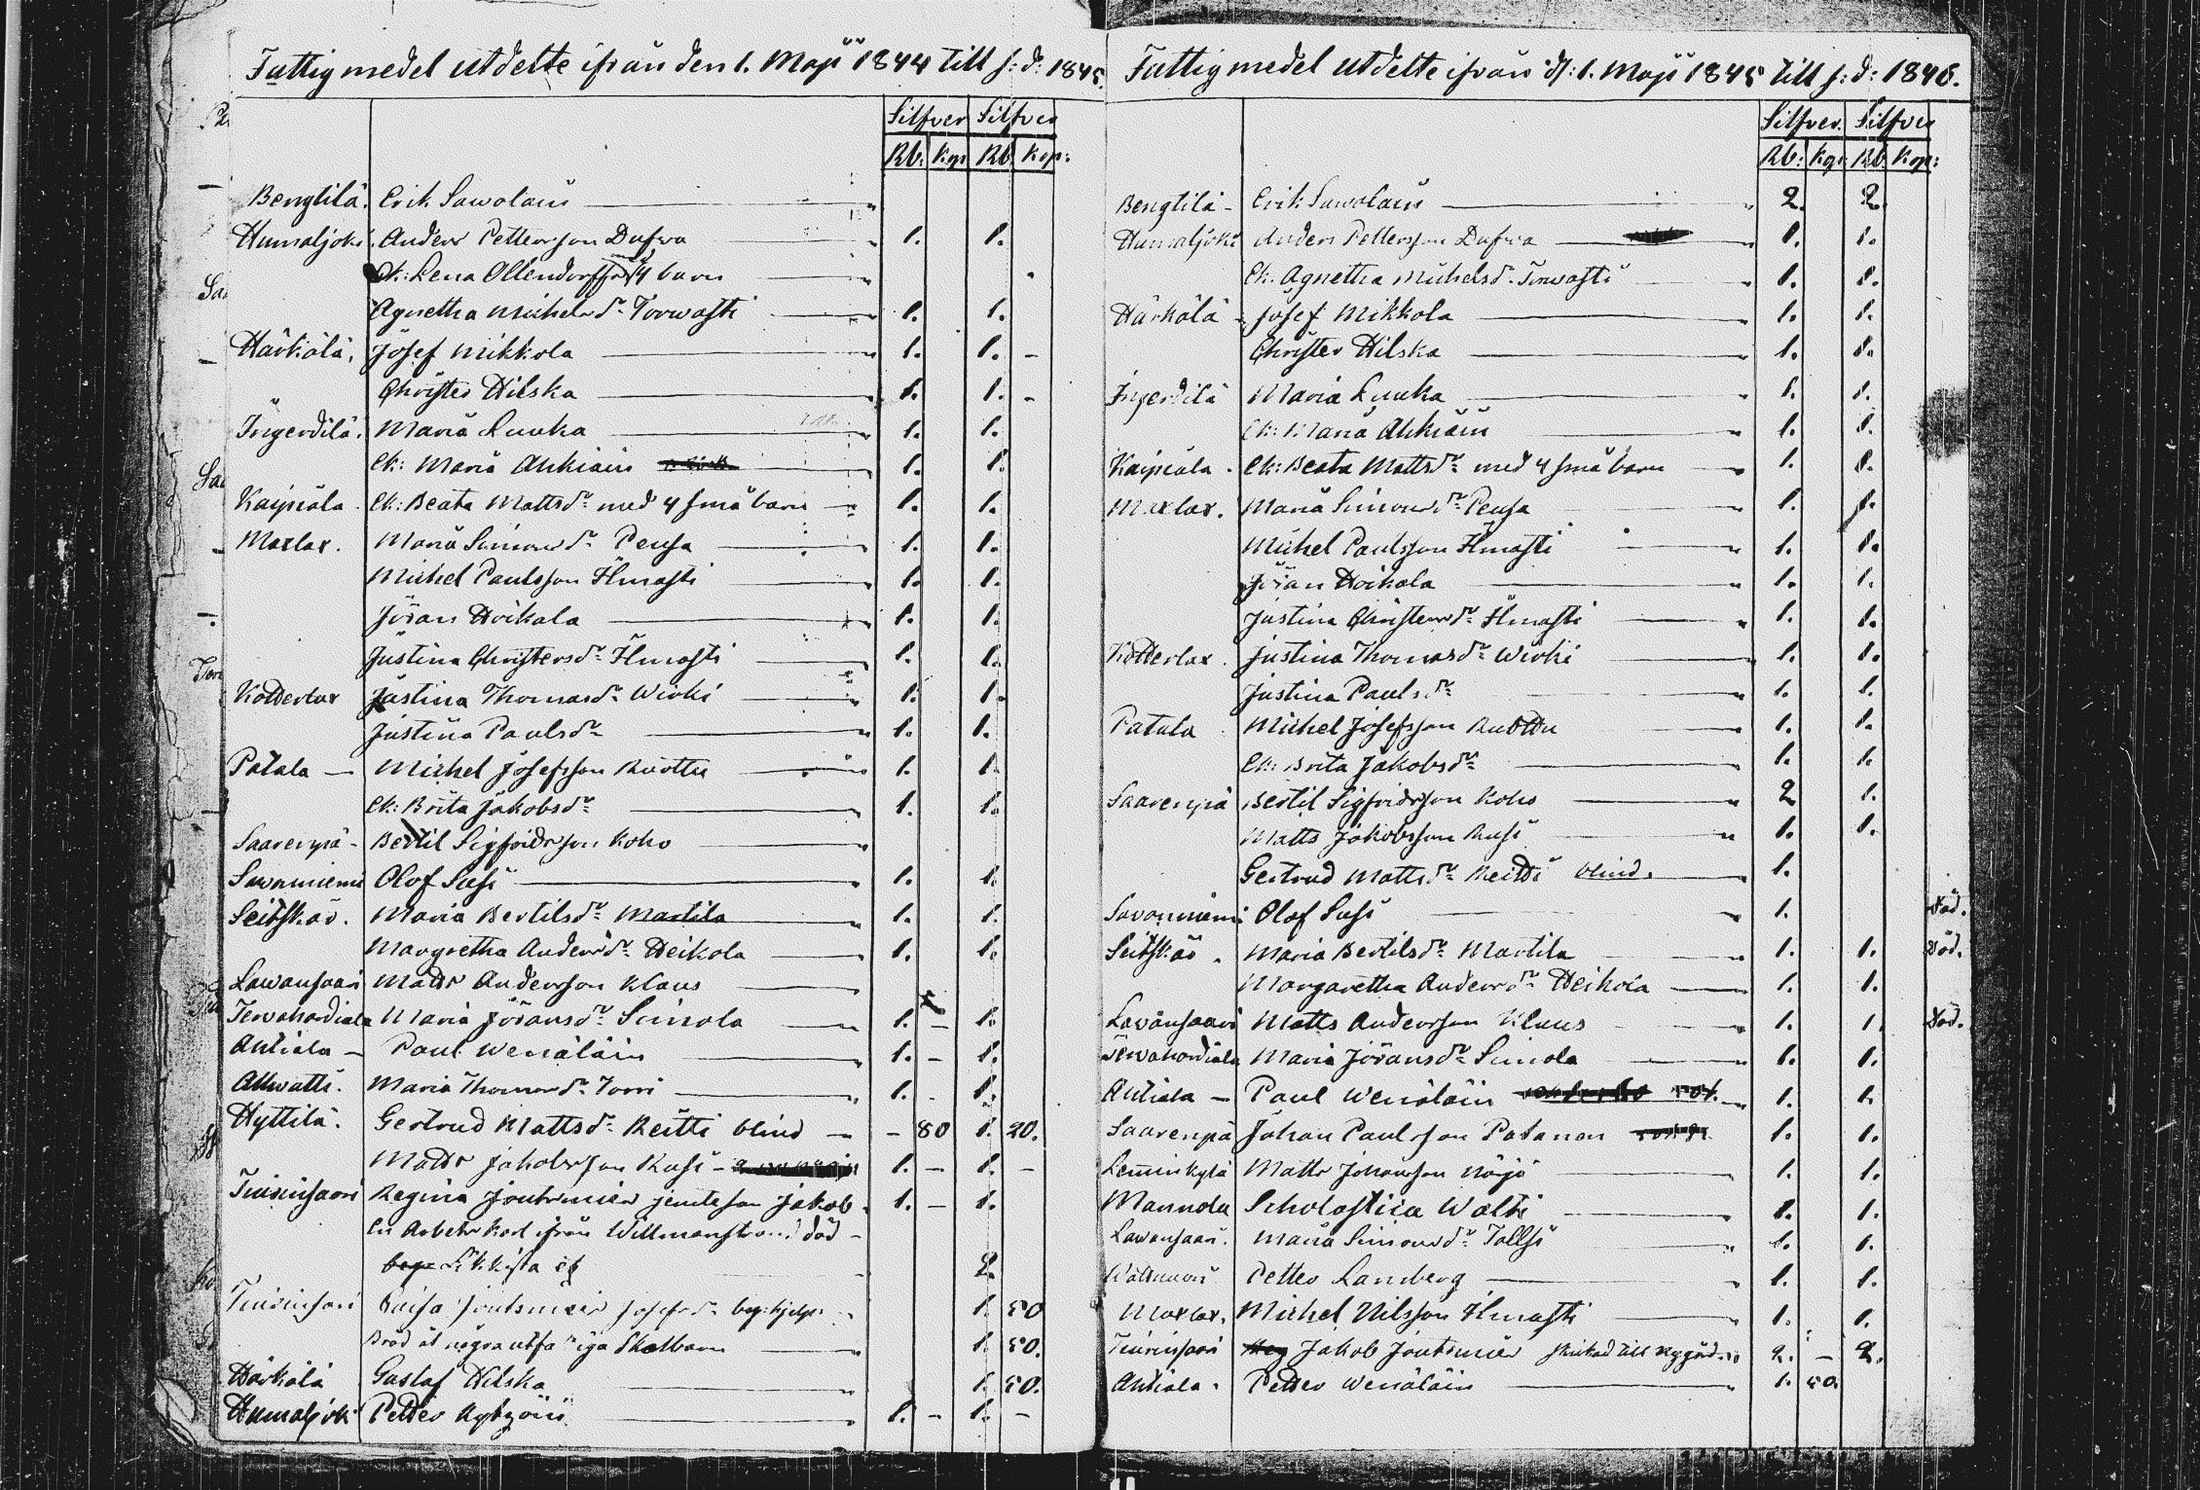 Fattigmedel utdelte ifrån den 1. Maji 1844 till s: d: 1845.
Silfver Silfver
Rb: Kop Rb Kop:
Bengtilä. Erik Sawolain
Humaljoki. Anders Pettersson Dufwa 1. 1.
Ek: Lena Ollendorff 4 barn
Agnetha Michelsdr Torwasti 1. 1.
Härkälä. Josef Mikkola 1. 1. -
Christer Hilska 1. 1. -
Ingerdilä. Maria Luuka 1. 1.
Ek: Maria Ahkiain 1. 1.
Kaipiala. Ek: Beata Mattsdr med 4 små barn 1. 1.
Maxlax. Maria Simonsdr Peusa 1. 1.
Michel Paulsson Ilmasti 1. 1.
Jöran Hoikala 1. 1.
Justina Christersdr Ilmasti 1. 1.
Kotterlax Justina Thomasdr Wirki 1. 1.
Justina Paulsdr 1. 1.
Patala — Michel Josefsson Ruottu 1. 1.
Ek: Brita Jakobsdr 1. 1.
Saarenpä - Bertil Sigfridsson Koho
Sawonniemi Olof Susi 1. 1.
Seitskär. Maria Bertilsdr Martila 1. 1.
Margretha Andersdr Heikola 1. 1.
Lawansaari Matts Andersson Klaus
Terwahardiala Maria Jöransdr Simola 1. - 1.
Antiala — Paul Wenäläin 1. - 1.
Maria Thomasdr Torri 1. 1.
Hyttilä. Gertrud Mattsdr Reitti blind - 80 1. 20.
Matts Jakobsson Rusi 1. - 1. -
Tiurinsaari Regina Joutsimies Jakob 1. - 1.
En Arbets karl ifrån Willmanstrand död
Likkista 2.
Tiurinsari Kaisa Joutsimies Josefsdr 1. 50
Bröd åt några 1. 50.
Härkälä Gustaf Hilska 1. 50.
Humaljoki Petter 1. - 1. -
Fattigmedel utdelte ifrån d: 1. Maji 1845 till s: d: 1846.
Silfver. Silfver
Rb: Kop Rb Kop:
Bengtilä - Erik Sawolain 2. 2.
Humaljoki Anders Pettersson Dufwa 1. 1.
Ek: Agnetha Michelsd. Torwasti 1. 1.
Härkälä - Josef Mikkola 1. 1.
Christer Hilska 1. 1.
Ingerdilä Maria Luuka 1. 1.
Ek: Maria Ahkiain 1. 1.
Kaipiala. Ek: Beata Mattsdr med 4 små barn 1. 1.
Maxlax. Maria Simonsdr Peusa 1. 1.
Michel Paulsson Ilmasti 1. 1.
Jöran Hoikala 1. 1.
Justina Christersdr Ilmasti 1. 1.
Kotterlax. Justina Thomasdr Wirki 1. 1.
Justina Paulsdr 1. 1.
Patala Michel Josefsson Ruottu 1. 1.
Ek: Brita Jakobsdr 1. 1.
Saarenpä Bertil Sigfridsson Koho 2 1.
Matts Jakobsson Rusi 1. 1.
Gertrud Mattsdr Reitti blind. 1.
Savonniemi Olof Susi 1. död.
Seitskär. Maria Bertilsdr Martila 1. 1. död.
Margaretha Andersdr Heikola 1. 1.
Lavansaari Matts Andersson Klaus 1. 1. död.
Terwahardiala Maria Jöransdr Simola 1. 1.
Antiala — Paul Wenäläin 1. 1.
Saarenpä Johan Paulsson Patanen 1. 1.
Matts Johansson Nöjö 1. 1.
Mannola Scholastica Walti 1. 1.
Lawansaari. Maria Simonsdr Tallsi 1. 1.
Petter Lamberg 1. 1.
Maxlax. Michel Nilsson Ilmasti 1. 1.
Tiurinsaari Jakob Joutsimies till 2. - 2.
Antiala. Petter Wenäläin 1. 50.